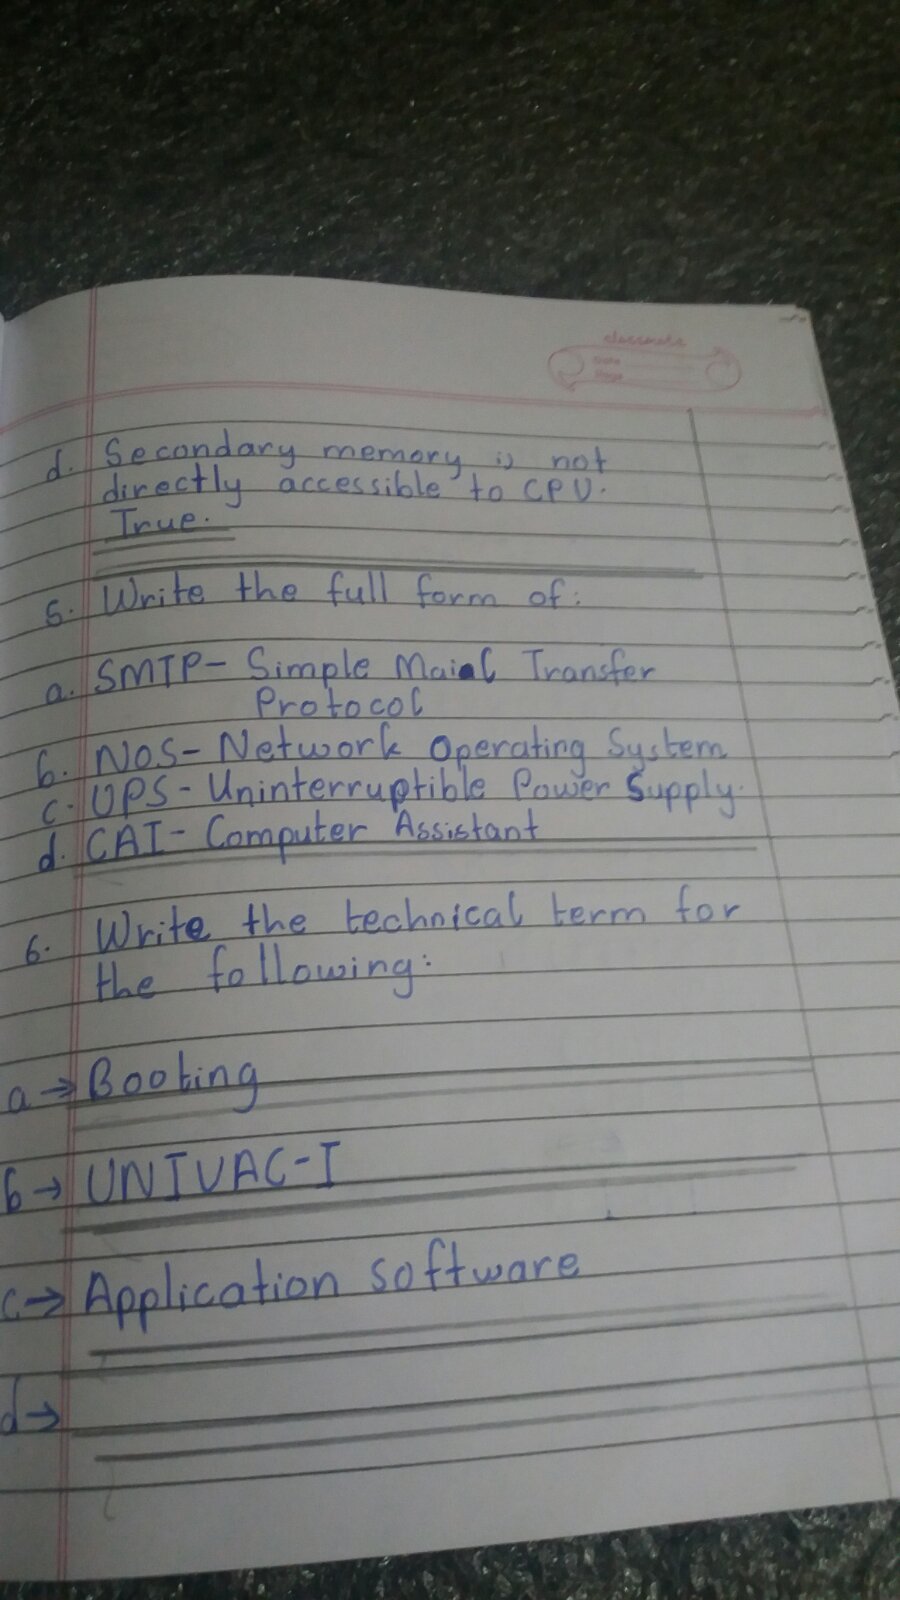 classmate
Date
Page
d. Secondary memory is not
directly accessible to CPU.
True.
5. Write the full form of:
a. SMTP- Simple Mail Transfer
Protocol
b. NOS- Network Operating System
c. UPS- Uninterruptible Power Supply.
d. CAI- Computer Assistant
6. Write the technical term for
the following:
a→ Booting
b→ UNIVAC-I
c→ Application software
d→